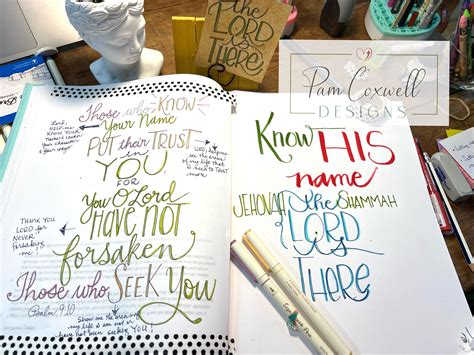 the
LORD
is
THERE
Pam Coxwell
DESIGNS
Those who KNOW
Your Name
PUT their TRUST
in
YOU
FOR
You O LORD
HAVE NOT
forsaken,
Those who SEEK YOU
Psalm 9:10
Lord,
HELP me
KNOW YOUR
THANK YOU
LORD for
NEVER
forsaking
me
Show me the areas in
my life I am not or
have not been seeking YOU!
Know HIS
name
JEHOVAH Shammah
the
LORD
is
THERE